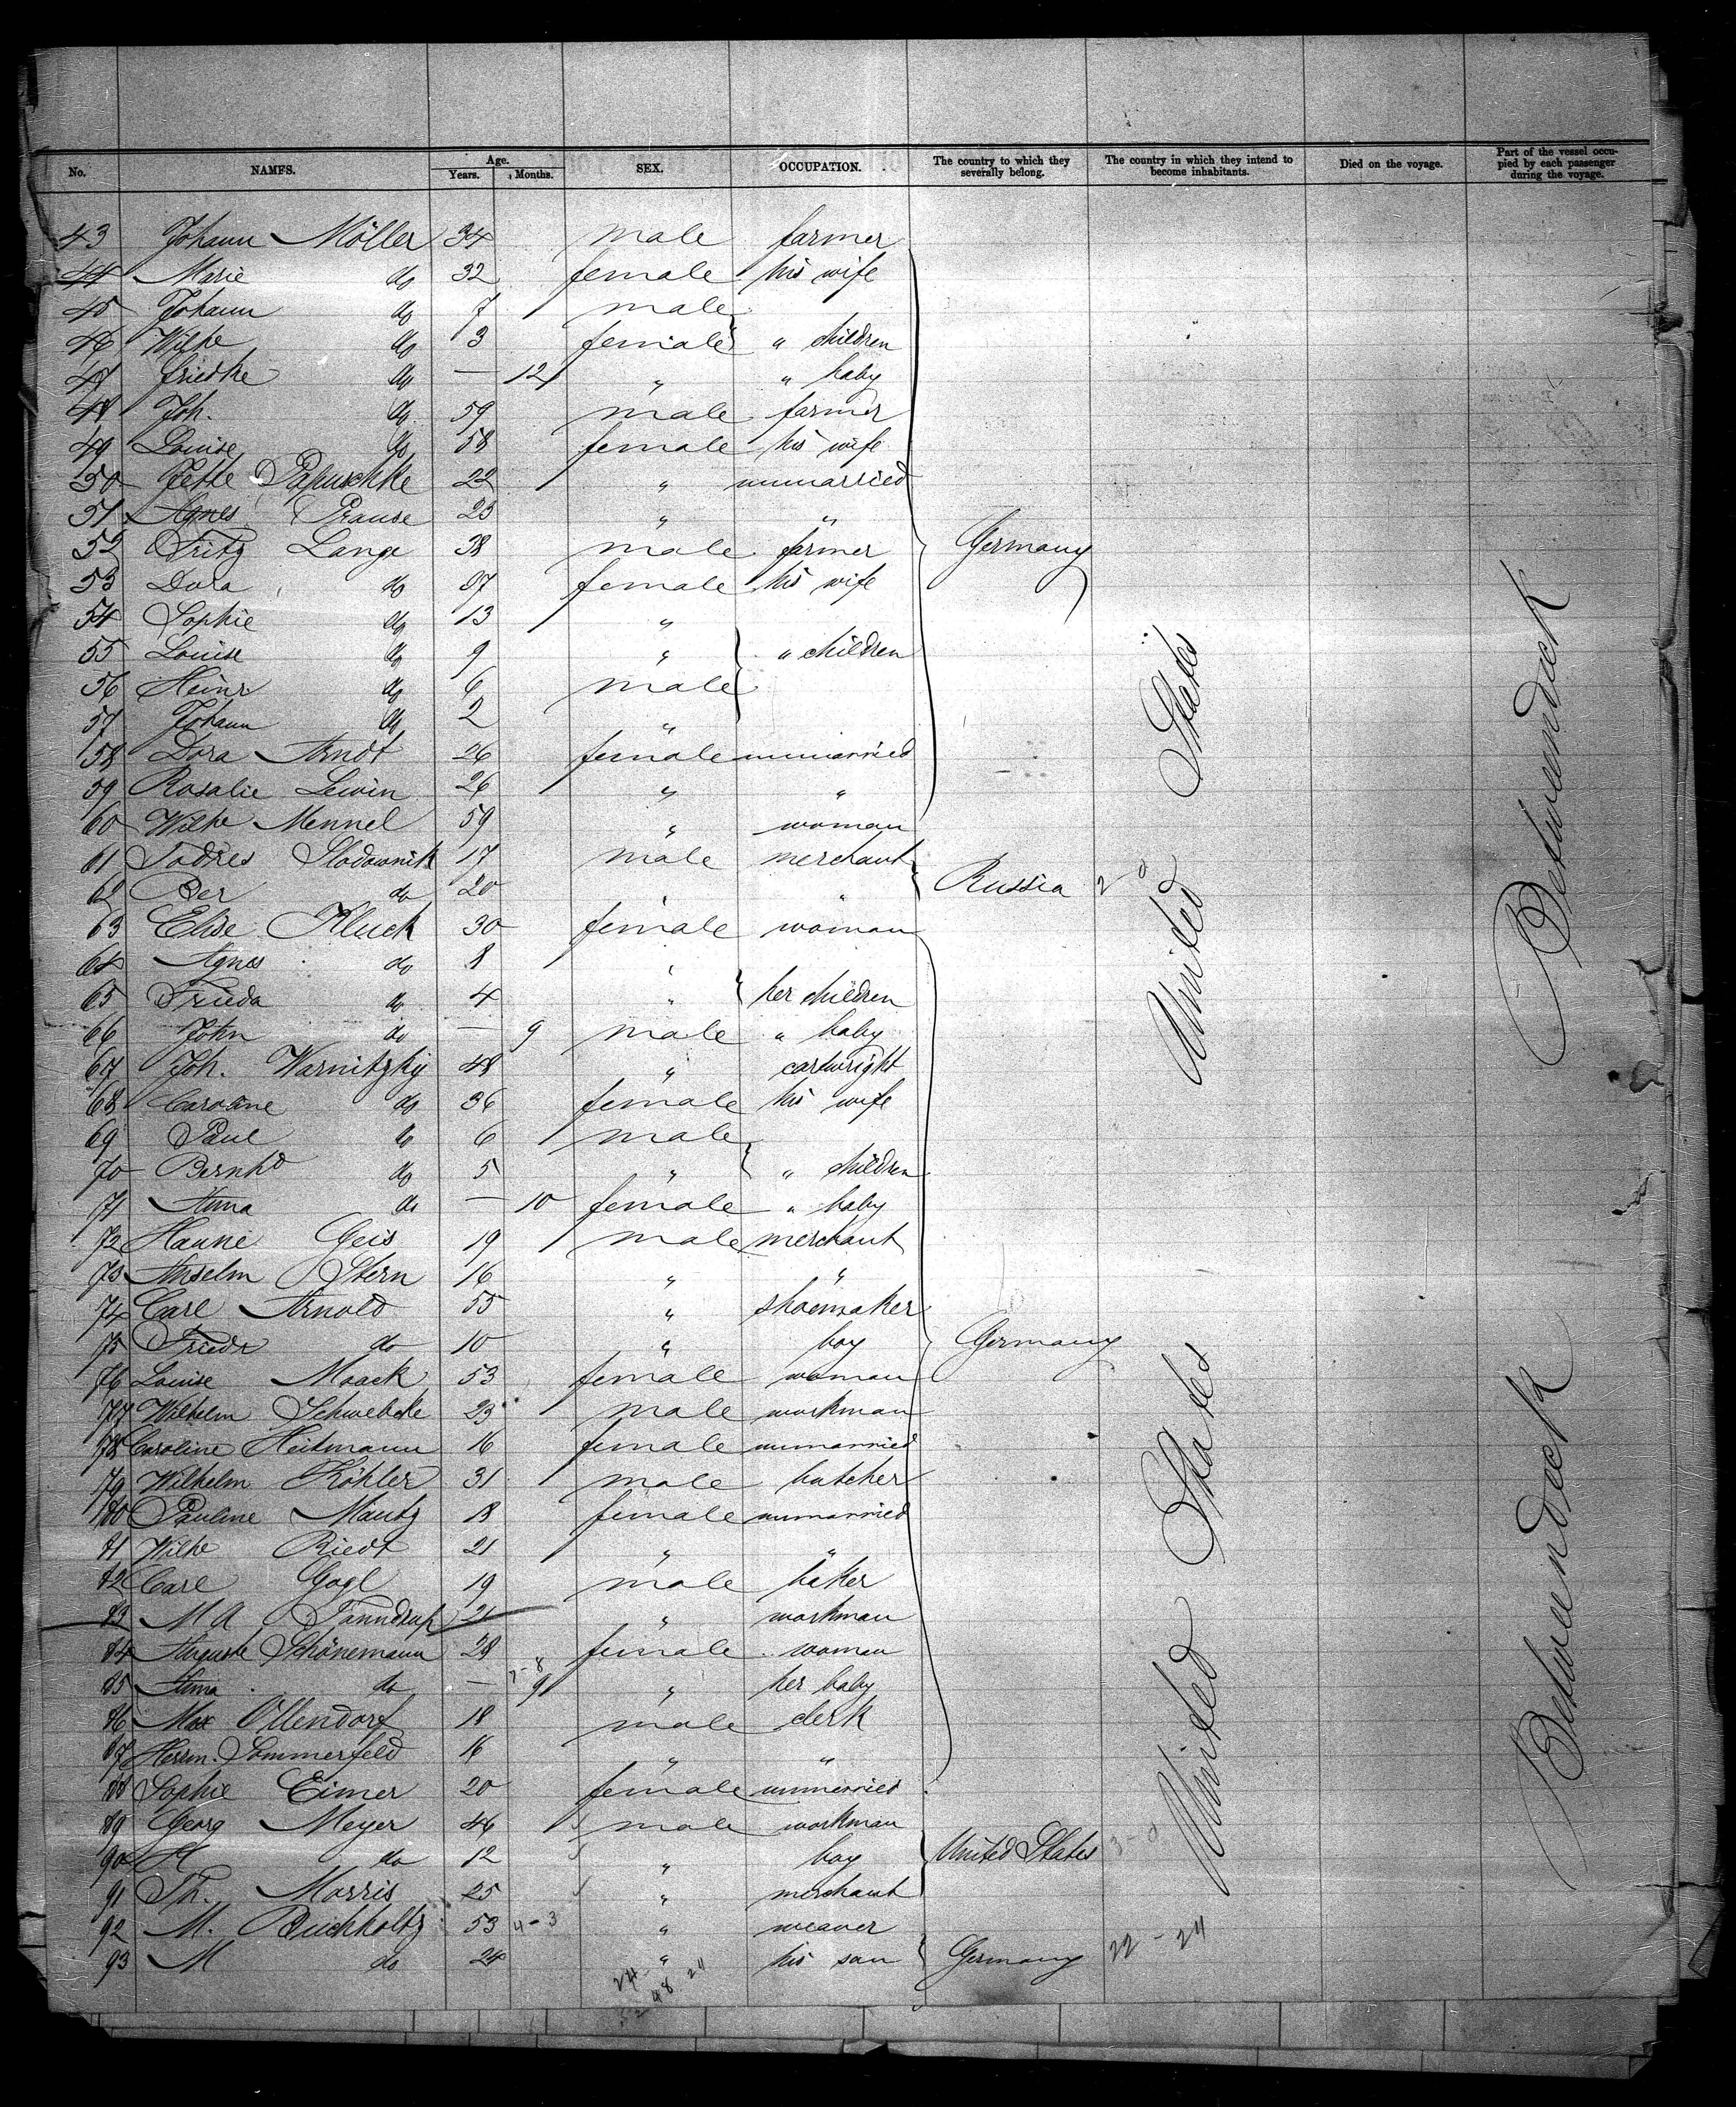 No. NAMES. Age. Years. Months. SEX. OCCUPATION. The country to which they severally belong. The country in which they intend to become inhabitants. Died on the voyage. Part of the vessel occupied by each passenger during the voyage.
43 Johann Möller 34 male farmer
44 Marie do 32 female his wife
45 Johann do 7 male
46 Wilhe do 3 female " children
47 Friedke do — 12 " " baby
48 Joh. do 59 male farmer
49 Louise do 58 female his wife
50 Jette Papuschke 22 " unmarried
51 Agnes Prause 23 " "
52 Fritz Lange 38 male farmer Germany
53 Dora do 37 female his wife
54 Sophie do 13 "
55 Louise do 9 " " children
56 Heinr do 6 male
57 Johann do 2 "
58 Dora Arndt 26 female unmarried
59 Rosalie Lewin 26 " "
60 Wilhe Mennel 59 " woman
61 Todres Slodownik 17 male merchant
62 Ber do 20 " " Russia 2 0
63 Elise Kluck 30 female woman
64 Agnes do 8 "
65 Frieda do 4 " her children
66 John do — 9 male " baby
67 Joh. Warnitzky 48 " cartwright
68 Caroline do 36 female his wife
69 Paul do 6 male
70 Bernhd do 5 " " children
71 Anna do — 10 female " baby
72 Hanne Geis 19 male merchant
73 Anselm Stern 16 " "
74 Carl Arnold 55 " shoemaker
75 Friedr do 10 " boy Germany
76 Louise Maack 53 female woman
77 Wilhelm Schwebcke 23 male workman
78 Caroline Heitmann 16 female unmarried
79 Wilhelm Köhler 31 male butcher
80 Pauline Mautz 18 female unmarried
81 Wilhe Riedt 21 " "
82 Carl Gogl 19 male baker
83 M A Tanndrup 21 " workman
84 Auguste Schönemann 28 female woman
85 Anna do — 9 " her baby
86 Max Ollendorf 18 male clerk
87 Herrm. Sommerfeld 16 " "
88 Sophie Eimer 20 female unmarried
89 Georg Meyer 46 male workman
90 H do 12 " boy United States 3-0
91 Th. Morris 25 " merchant
92 M. Buchholtz 53 4-3 " weaver
93 M do 24 " his son Germany 22-24
24 48 24
United States
United States
Betweendeck
Betweendeck